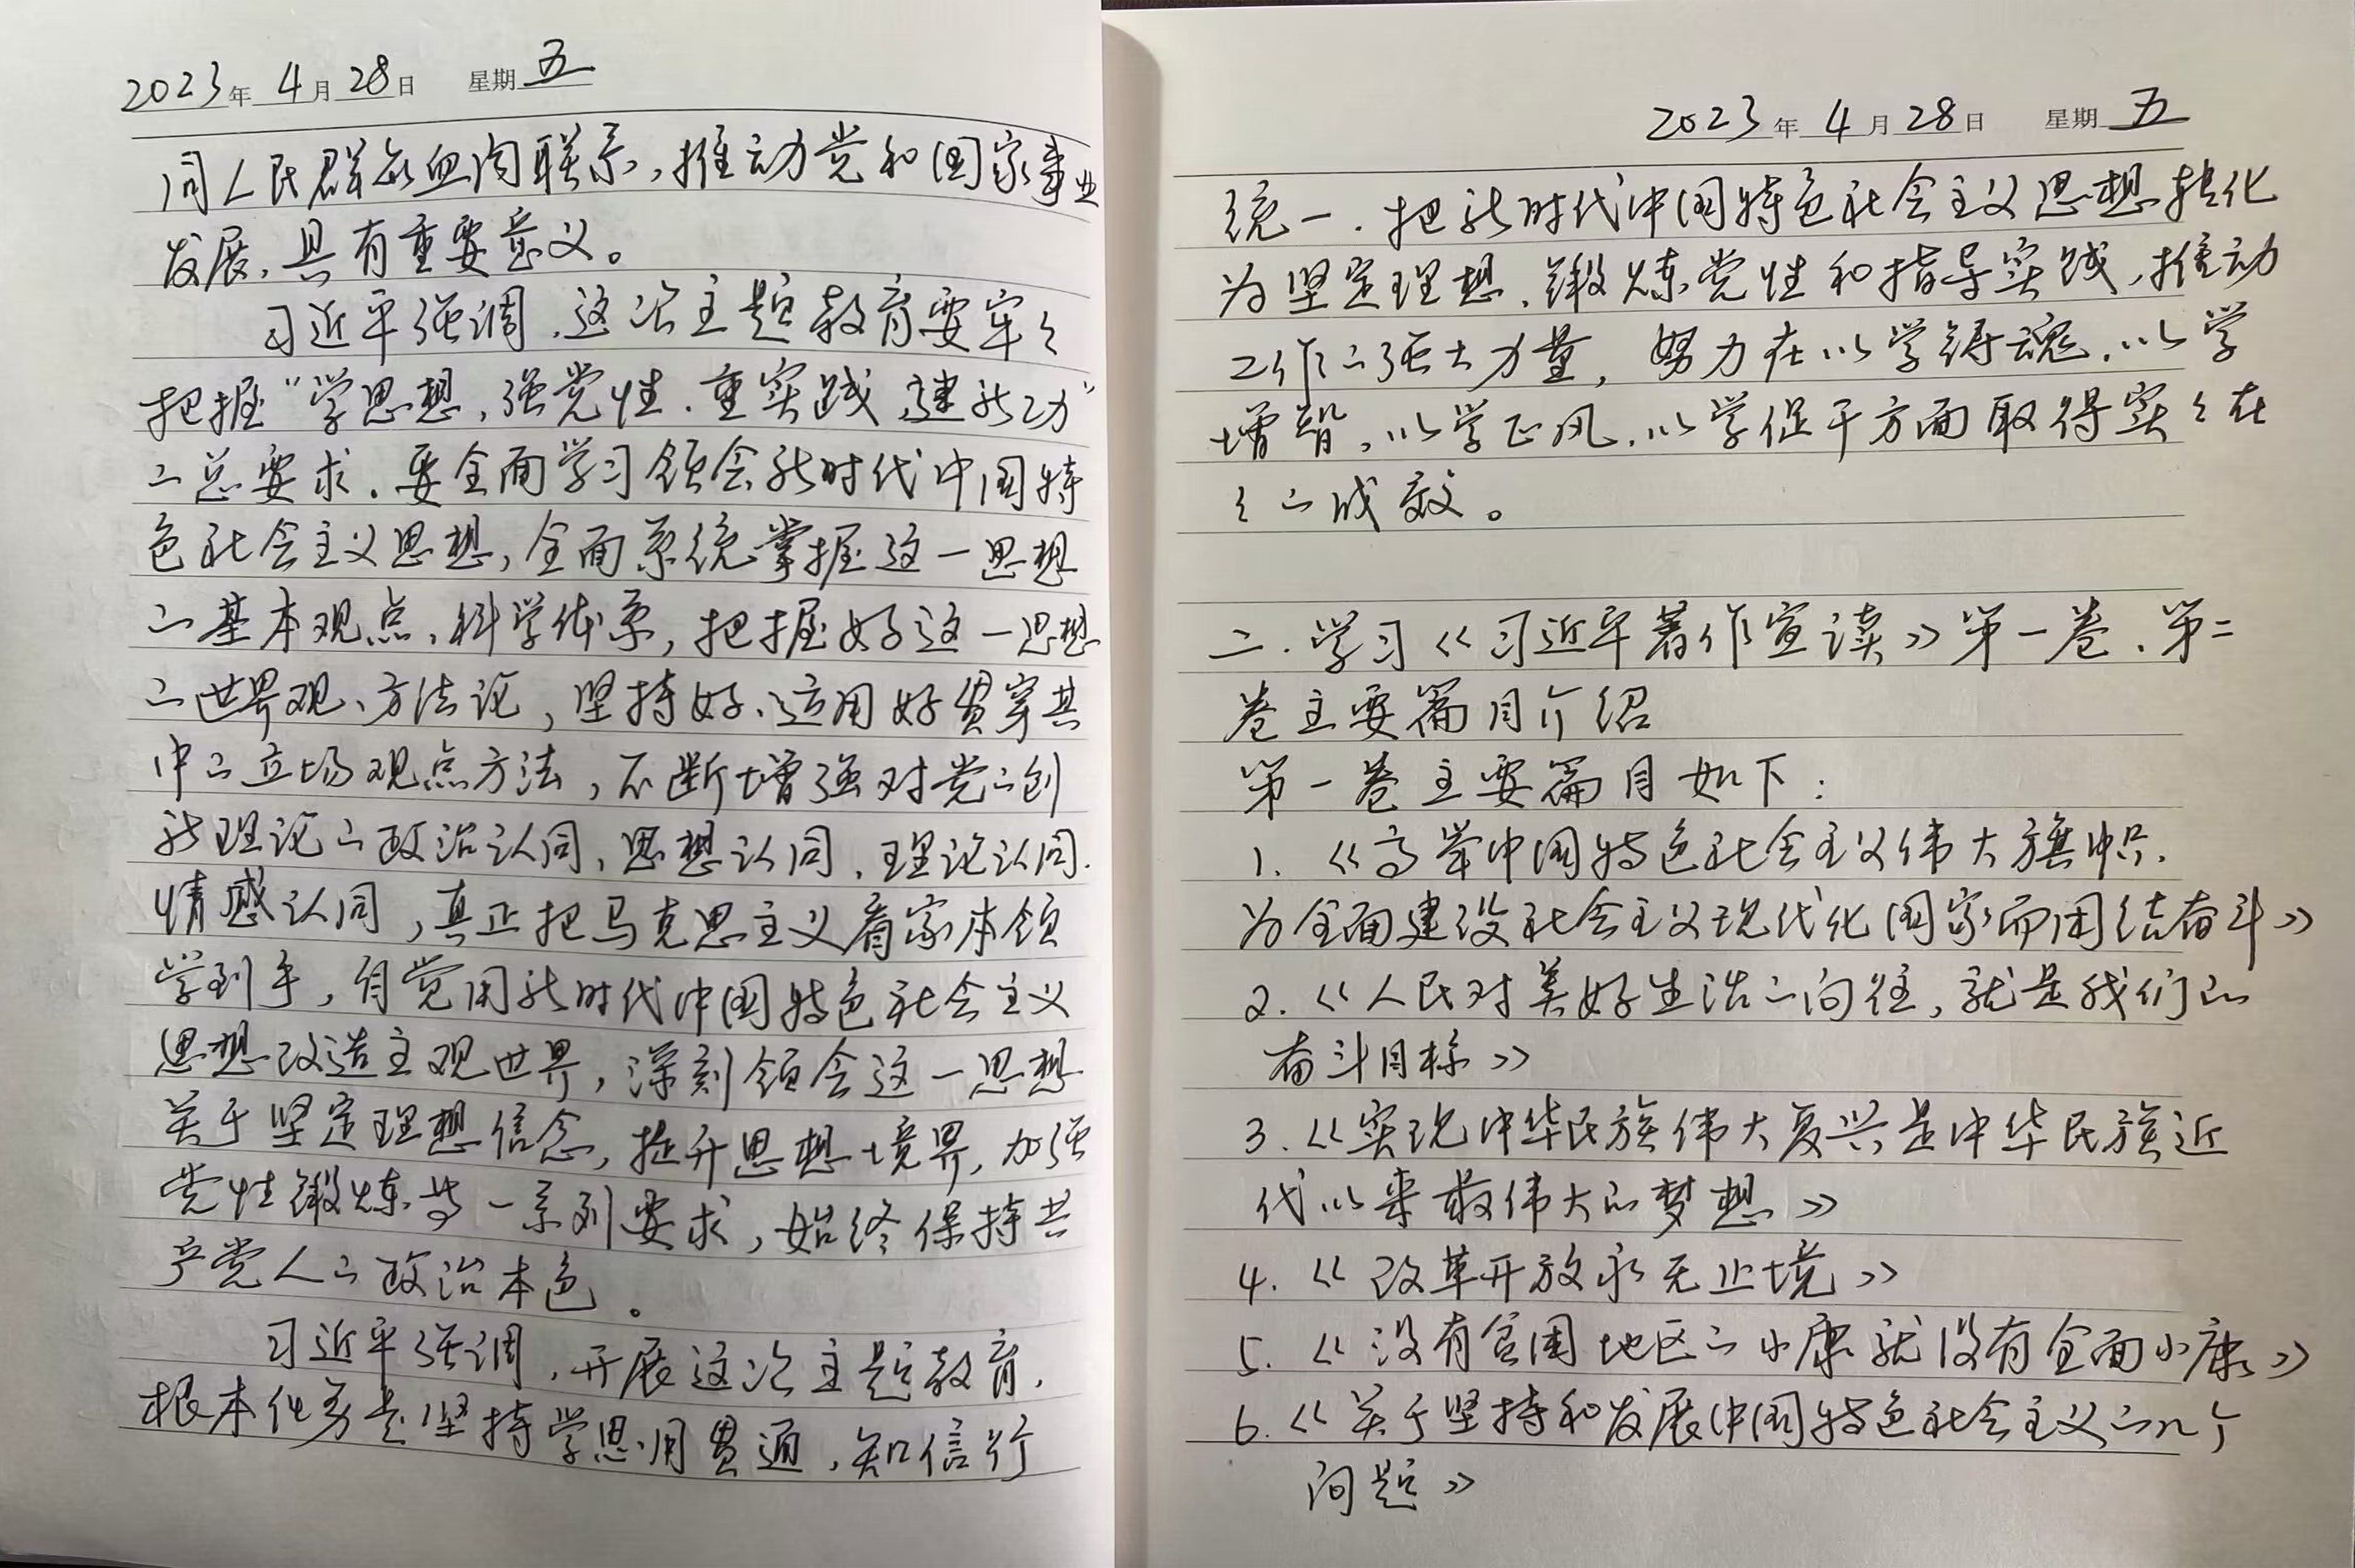 2023年 4月 28日 星期 五
同人民群众血肉联系,推动党和国家事业
发展,具有重要意义。
习近平强调,这次主题教育要牢々
把握“学思想,强党性.重实践,建新功”
的总要求.要全面学习领会新时代中国特
色社会主义思想,全面系统掌握这一思想
的基本观点、科学体系,把握好这一思想
的世界观、方法论,坚持好、运用好贯穿其
中的立场观点方法,不断增强对党的创
新理论的政治认同、思想认同、理论认同.
情感认同,真正把马克思主义看家本领
学到手,自觉用新时代中国特色社会主义
思想改造主观世界,深刻领会这一思想
关于坚定理想信念,提升思想境界,加强
党性锻炼等一系列要求,始终保持共
产党人的政治本色。
习近平强调,开展这次主题教育,
根本任务是坚持学思用贯通,知信行
2023年 4月 28日 星期 五
统一.把新时代中国特色社会主义思想转化
为坚定理想、锻炼党性和指导实践,推动
工作的强大力量,努力在以学铸魂.以学
增智,以学正风.以学促干方面取得实々在
々的成效。
二.学习《习近平著作宣读》第一卷.第二
卷主要篇目介绍
第一卷主要篇目如下:
1.《高举中国特色社会主义伟大旗帜.
为全面建设社会主义现代化国家而团结奋斗》
2.《人民对美好生活的向往,就是我们的
奋斗目标》
3.《实现中华民族伟大复兴是中华民族近
代以来最伟大的梦想》
4.《改革开放永无止境》
5.《没有贫困地区的小康就没有全面小康》
6.《关于坚持和发展中国特色社会主义的几个
问题》